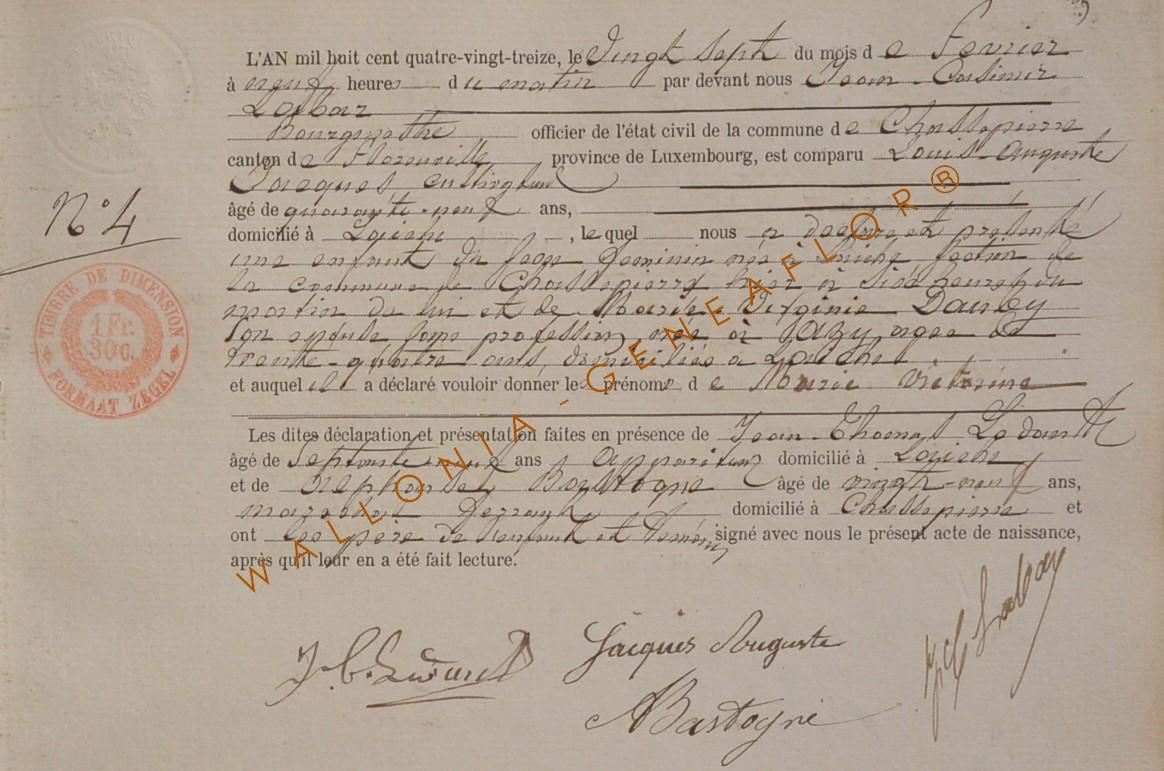 L'AN mil huit cent quatre-vingt-treize, le Vingt Sept du mois de Fevrier
à neuf heures du matin par devant nous Jean-Casimir
Bourgmestre officier de l'état civil de la commune de Chassepierre
canton de Florenville province de Luxembourg, est comparu Louis-Auguste
Jacques,
N° 4
âgé de quarante-neuf ans,
domicilié à Laiche, lequel nous a declaré et présenté
une enfant du sexe feminin née à Laiche section de
la commune de Chassepierre hier à heures du
matin de lui et de Marie Virginie Dauby
son épouse sans profession née à Izel agee de
trente-quatre ans, domiciliés à Laiche
et auquel il a déclaré vouloir donner les prénoms de Marie Victorine
Les dites déclaration et présentation faites en présence de Jean-Thomas
âgé de Septante ans, Appariteur domicilié à Laiche
et de Alphonse Bastogne âgé de vingt-neuf ans,
marechal ferrant domicilié à Chassepierre et
ont les père de l'enfant et témoins signé avec nous le présent acte de naissance,
après qu'il leur en a été fait lecture.
TIMBRE DE DIMENSION
1 Fr.
30 C.
FORMAAT ZEGEL
WALLONIA-GENEAFLOR®
Jacques Auguste
A Bastogne